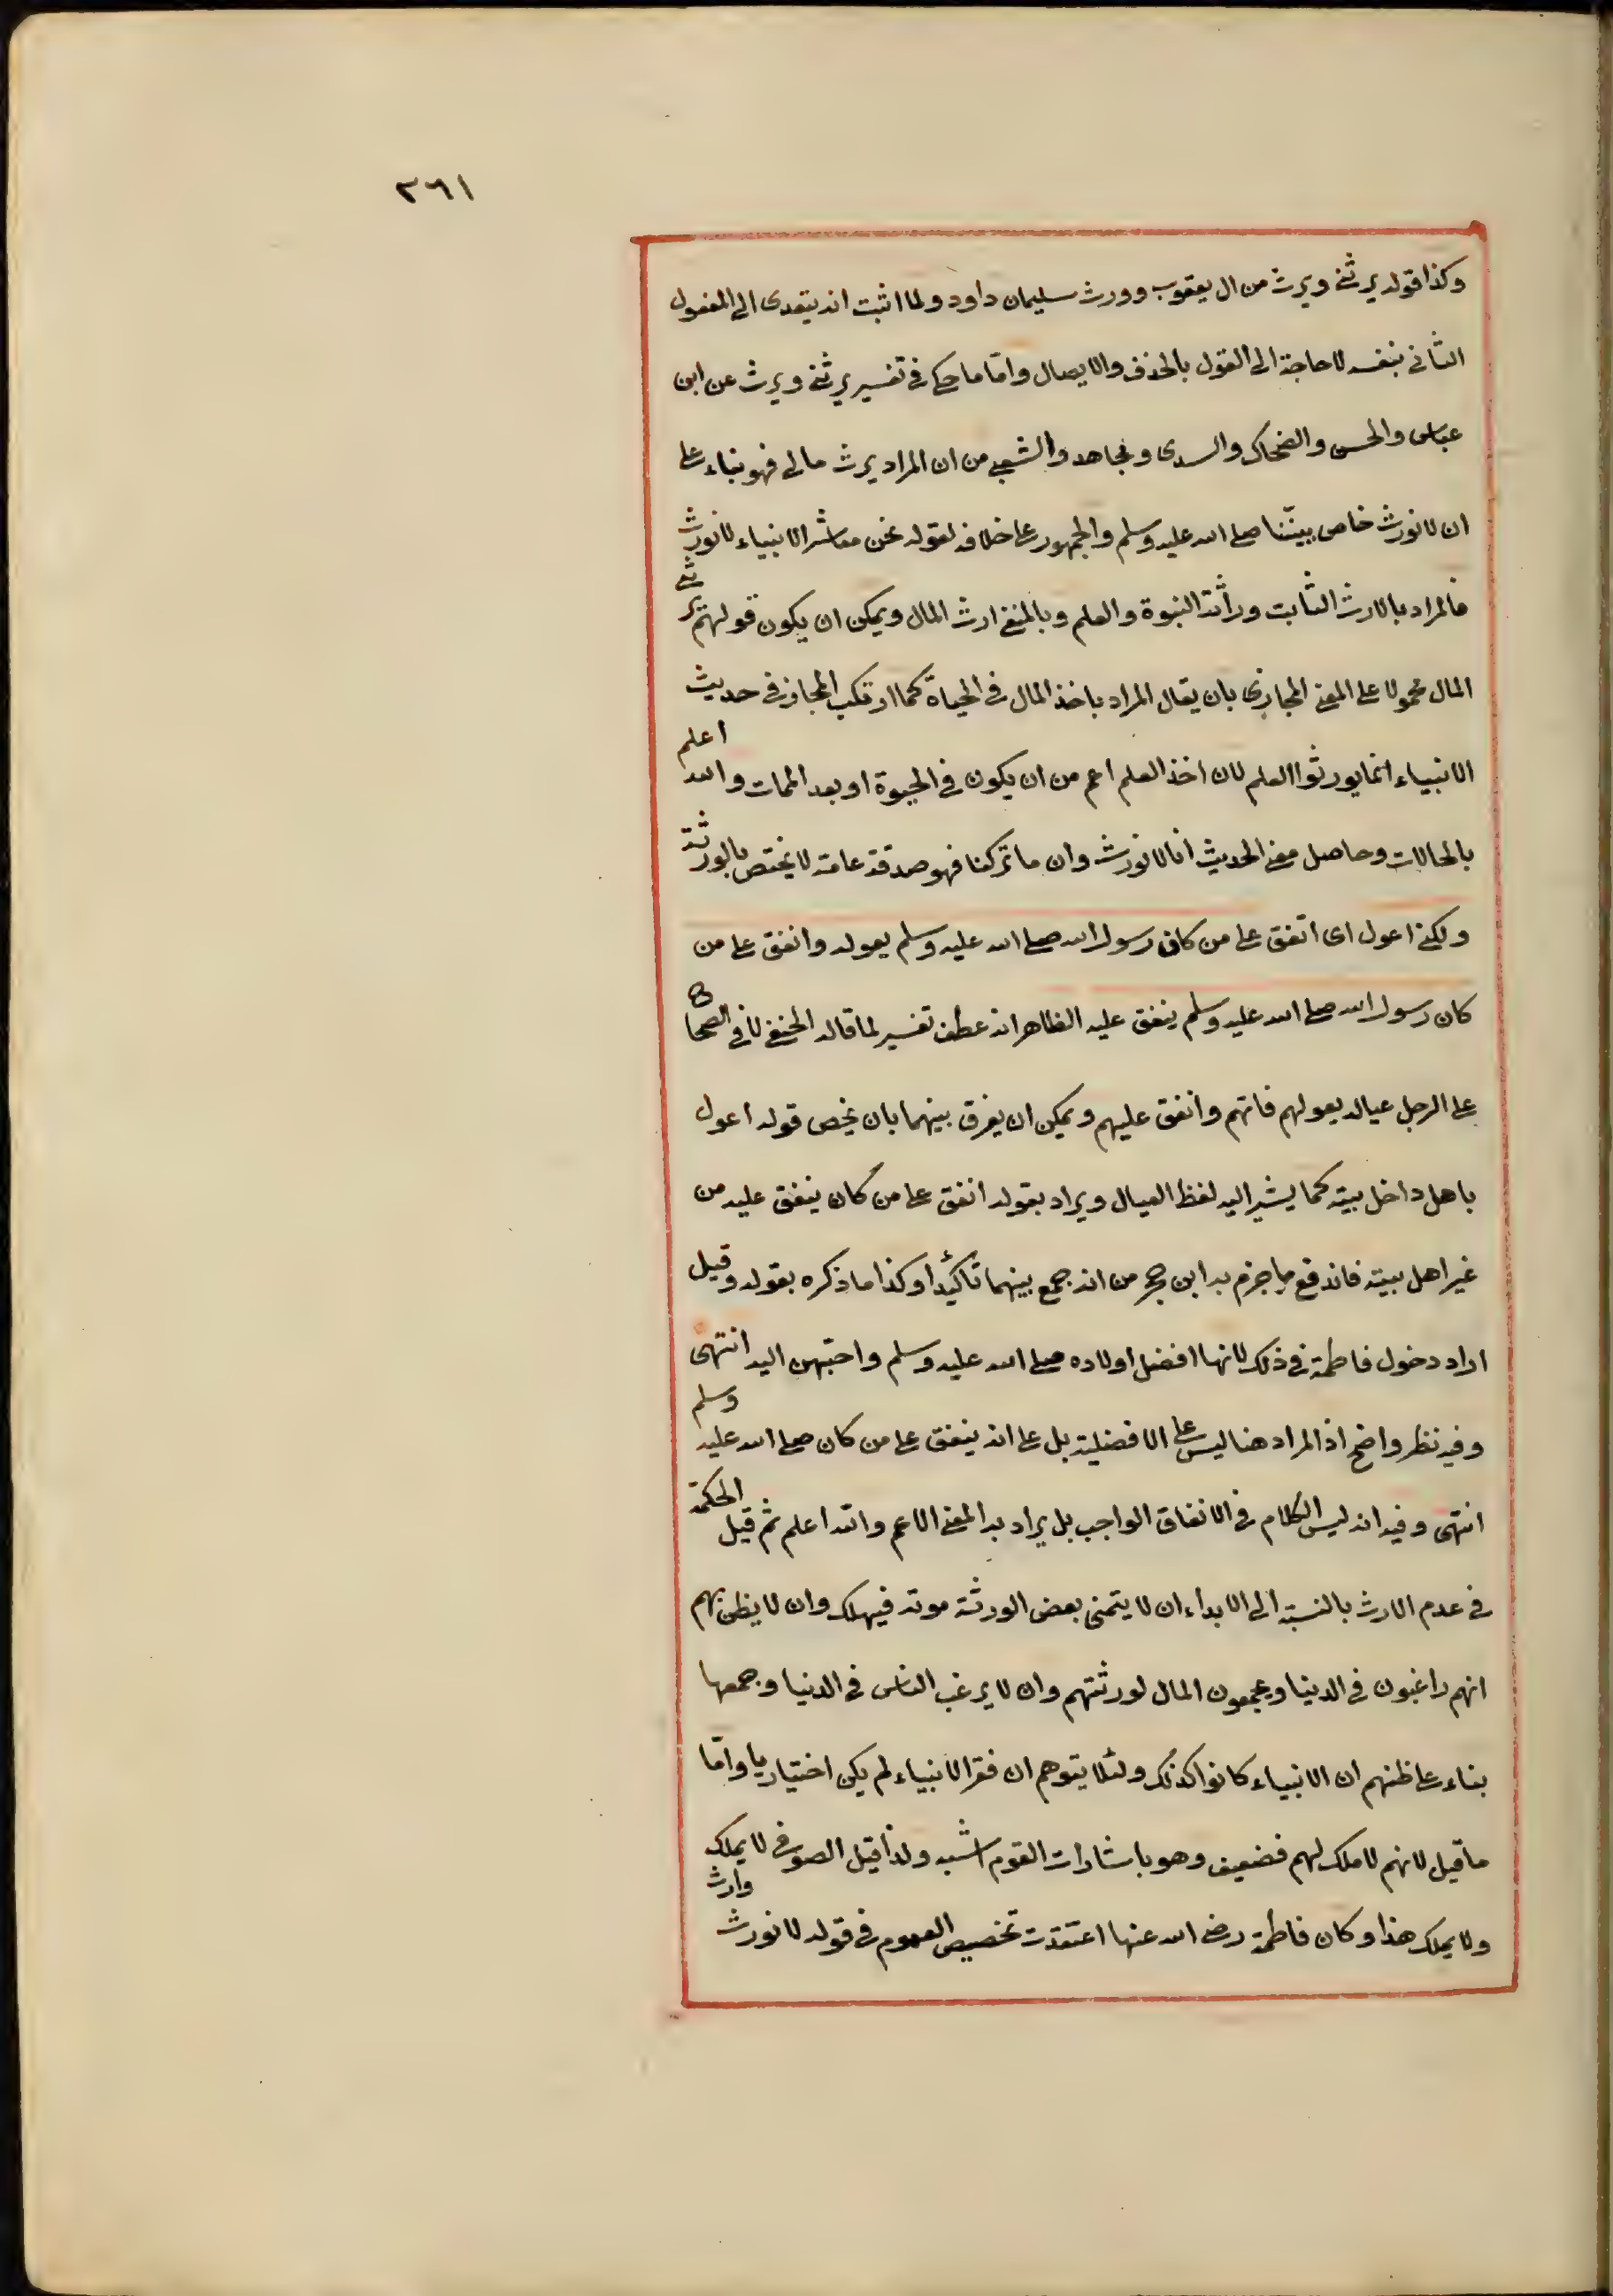 ٣٦١
وكذا قوله يرثني ويرث من ال يعقوب وورث سليمان داود ولما اثبت انه يتعدى الى المفعول
الثاني بنفسه لا حاجة الى القول بالحذف والايصال واما ما حكي في تفسير يرثني ويرث عن ابن
عباس والحسن والضحاك والسدى ومجاهد والشعبي من ان المراد يرث مالي فهو بناء على
ان لا نورث خاص بنبينا صلى الله عليه وسلم والجمهور على خلافه لقوله نحن معاشر الانبياء لا نورث
فالمراد بالارث الثابت وراثة النبوة والعلم وبالمنفي ارث المال ويمكن ان يكون قولهم يرثني
المال محمولا على المعنى المجازي بان يقال المراد باخذ المال في الحياة كما ارتكب المجاز في حديث
الانبياء انما يورثوا العلم لان اخذ العلم اعم من ان يكون في الحيوة او بعد الممات والله اعلم
بالحالات وحاصل معنى الحديث انا لا نورث وان ما تركنا فهو صدقة عامة لا يختص بالورثة
ولكني اعول اى انفق على من كان رسول الله صلى الله عليه وسلم يعوله وانفق على من
كان رسول الله صلى الله عليه وسلم ينفق عليه الظاهر انه عطف تفسير لما قاله الحنفي لا في الصحاح
على الرجل عياله يعولهم قاتهم وانفق عليهم ويمكن ان يفرق بينهما بان يخص قوله اعول
باهل داخل بيته كما يشير اليه لفظ العيال ويراد بقوله انفق على من كان ينفق عليه من
غير اهل بيته فاندفع ما جزم به ابن حجر من انه جمع بينهما تاكيدا وكذا ما ذكره بقوله وقيل
اراد دخول فاطمة في ذلك لانها افضل اولاده صلى الله عليه وسلم واحبهن اليه انتهى
وفيه نظر واضح اذ المراد هنا ليس على الافضلية بل على انه ينفق على من كان صلى الله عليه وسلم
انتهى وفيه انه ليس الكلام في الانفاق الواجب بل يراد به المعنى الاعم والله اعلم ثم قيل الحكمة
في عدم الارث بالنسبة الى الابداء ان لا يتمنى بعض الورثة موته فيهلك وان لا يظن بهم
انهم راغبون في الدنيا ويجمعون المال لورثتهم وان لا يرغب الناس في الدنيا وجمعها
بناء على ظنهم ان الانبياء كانوا كذلك ولئلا يتوهم ان فقر الانبياء لم يكن اختياريا واما
ما قيل لانهم لا ملك لهم فضعيف وهو باشارات القوم اشبه ولذا قيل الصوفي لا يملك
ولا يملك هذا وكان فاطمة رضي الله عنها اعتقدت تخصيص العموم في قوله لا نورث
وارث